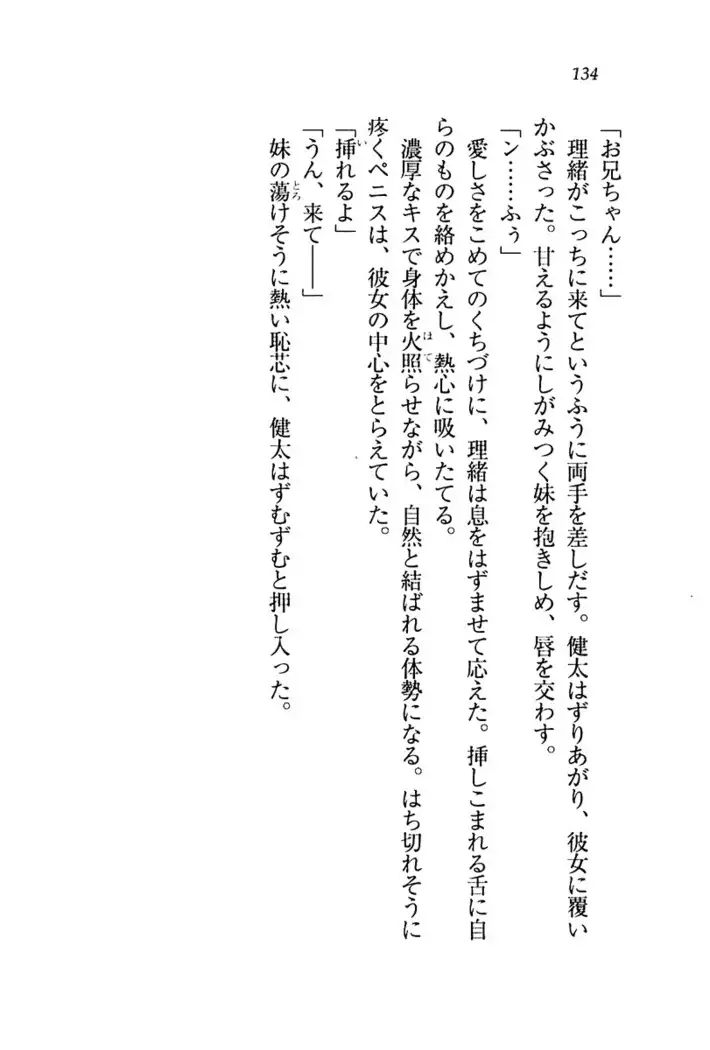 134
「お兄ちゃん……」
理緒がこっちに来てというふうに両手を差しだす。健太はずりあがり、彼女に覆い
かぶさった。甘えるようにしがみつく妹を抱きしめ、唇を交わす。
「ン……ふぅ」
愛しさをこめてのくちづけに、理緒は息をはずませて応えた。挿しこまれる舌に自
らのものを絡めかえし、熱心に吸いたてる。
濃厚なキスで身体を火照らせながら、自然と結ばれる体勢になる。はち切れそうに
疼くペニスは、彼女の中心をとらえていた。
「挿れるよ」
「うん、来て――」
妹の蕩けそうに熱い恥芯に、健太はずむずむと押し入った。